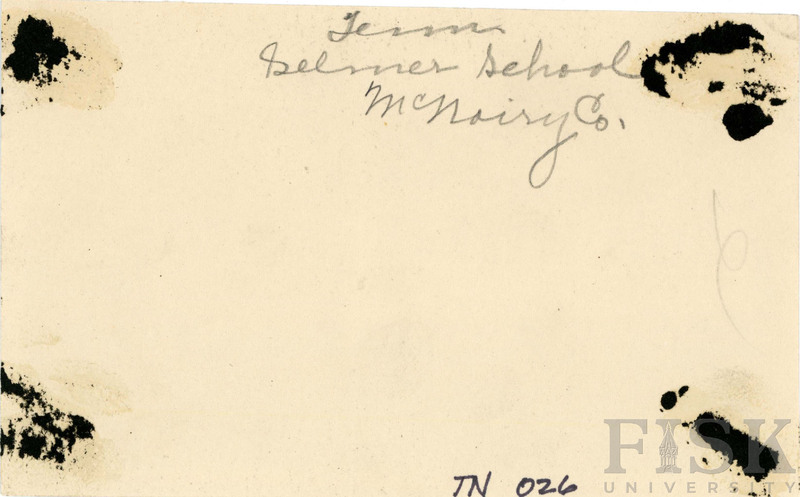 Tenn.
Selmer School
McNairy Co.
TN 026
FISK
UNIVERSITY